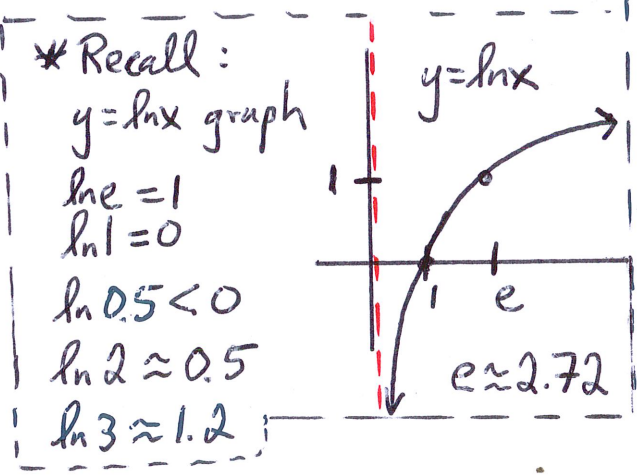 * Recall :
y=lnx graph
ln e = 1
ln 1 = 0
ln 0.5 < 0
ln 2 ≈ 0.5
ln 3 ≈ 1.2
y=lnx
1
1 e
e≈2.72